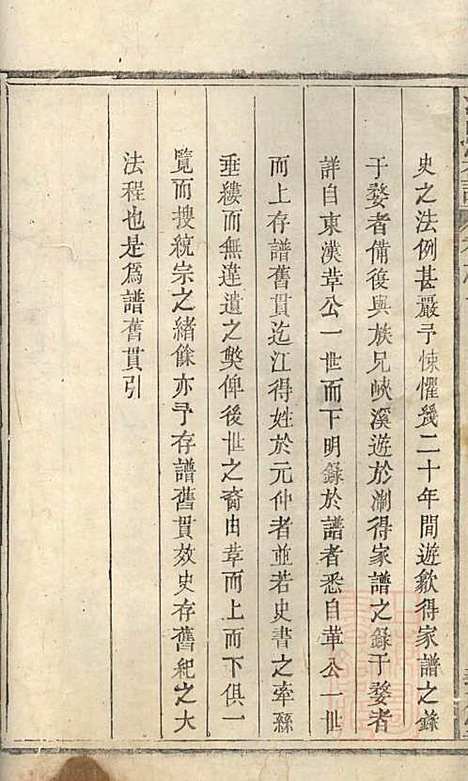 史之法例甚嚴予悚懼㡬二十年間遊歙得家譜之錄
于婺者備後與族兄峽溪遊於溮得家譜之錄于婺者
詳自東漢革公一世而下明錄於譜者悉自革公一世
而上存譜舊貫迄江得姓於元仲者並若史書之牽緜
垂縷而無違遺之獘俾後世之裔由革而上而下俱一
覽而搜統宗之緒餘亦予存譜舊貫效史存舊紀之大
法程也是為譜舊貫引